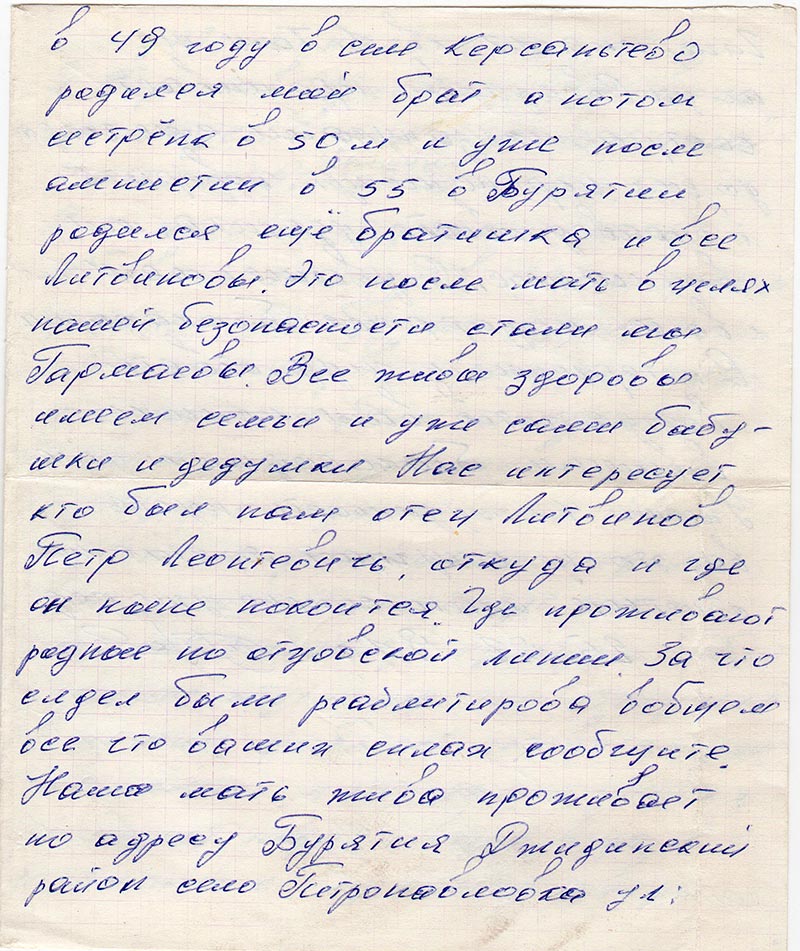 в 49 году в селе Керсантьево
родился мой брат а потом
сестрёнк в 50 м и уже после
амнистии в 55 в Бурятии
родился ещё братишка и все
Литвиновы. Это после мать в целях
нашей безопасности стали мы
Гармаевы. Все живы здоровы
имеем семьи и уже сами бабу-
шки и дедушки Нас интересует
кто был нам отец Литвинов
Петр Леонтевичь, откуда и где
он ныне покоится. Где проживают
родные по отцовской линии. За что
сидел были реаблитирова вобщем
все что ваших силах сообщите.
Наша мать жива проживает
по адресу Бурятия Джидинский
район село Петропавловка ул: